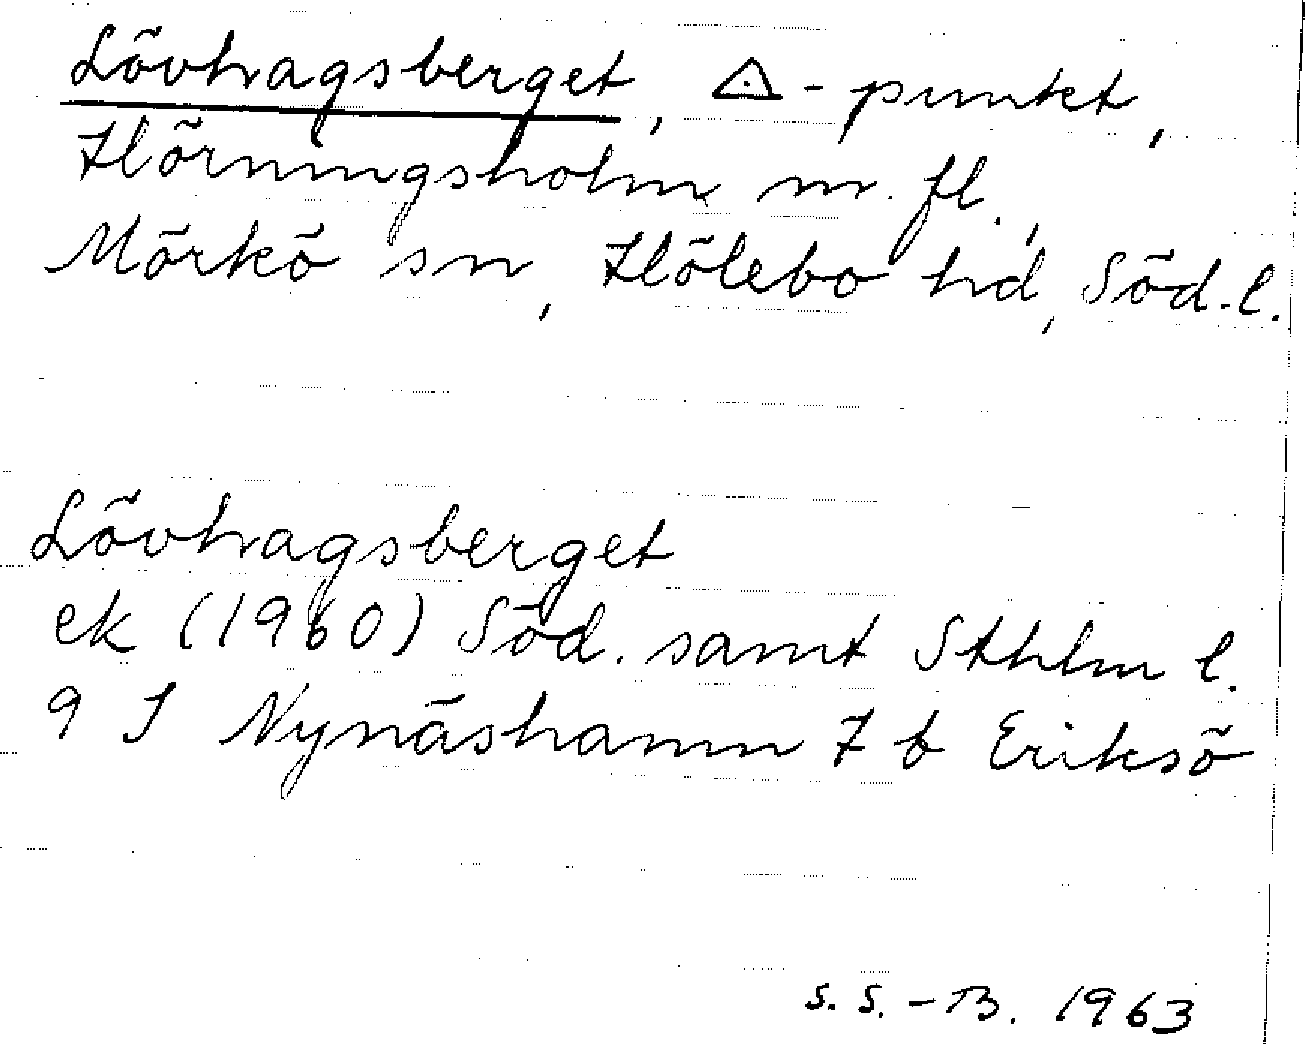 Lövhagsberget, △-punkt,
Hörningsholm m. fl.,
Mörkö sn, Hölebo hd, Söd. l.
Lövhagsberget
ek (1960) Söd. samt Sthlm l.
9 I Nynäshamn 7 b Eriksö
S. S.-B. 1963